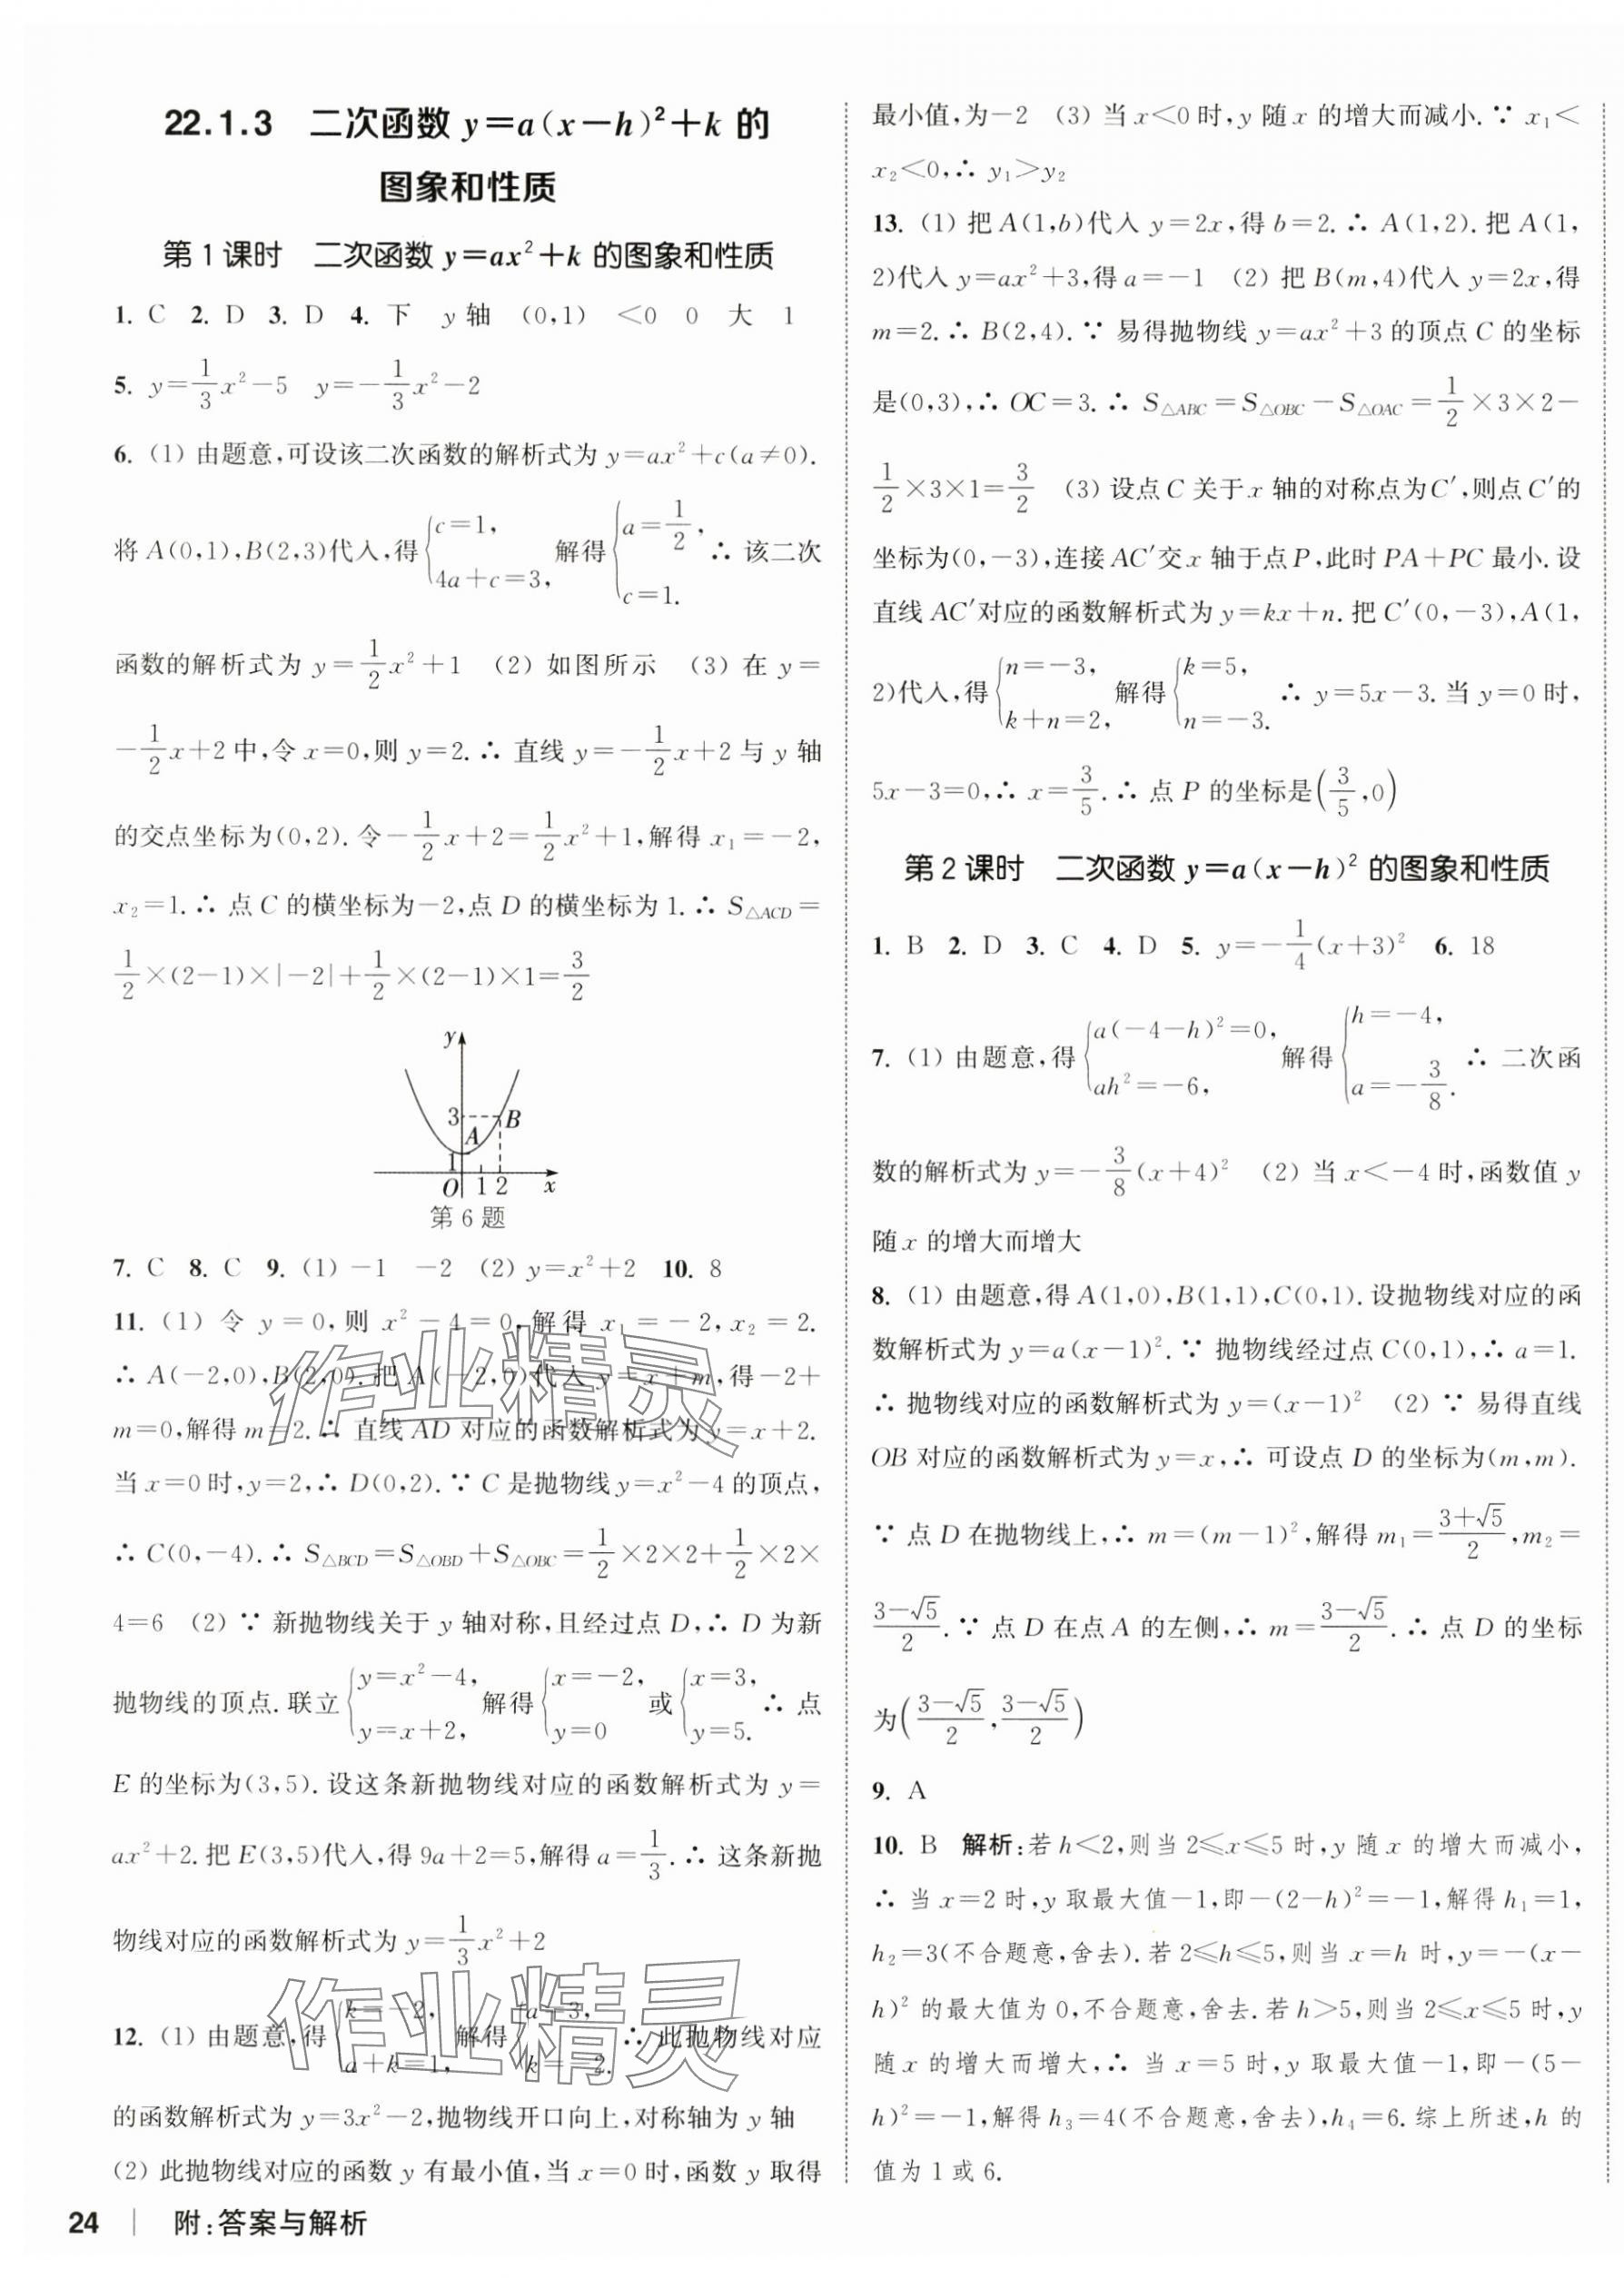 22.1.3 二次函数 y=a(x-h)²+k 的
图象和性质
第1课时 二次函数 y=ax²+k 的图象和性质
1. C 2. D 3. D 4. 下 y轴 (0,1) <0 0 大 1
5. y=1/3x²-5 y=-1/3x²-2
6. (1) 由题意,可设该二次函数的解析式为 y=ax²+c(a≠0).
将A(0,1),B(2,3)代入,得{c=1, 4a+c=3, 解得{a=1/2, c=1. ∴ 该二次
函数的解析式为 y=1/2x²+1 (2) 如图所示 (3) 在 y=
-1/2x+2中,令x=0,则y=2.∴ 直线y=-1/2x+2与y轴
的交点坐标为(0,2).令-1/2x+2=1/2x²+1,解得x₁=-2,
x₂=1.∴ 点C的横坐标为-2,点D的横坐标为1.∴ S△ACD=
1/2×(2-1)×|-2|+1/2×(2-1)×1=3/2
y
3
B
A
1
O 1 2 x
第6题
7. C 8. C 9. (1) -1 -2 (2) y=x²+2 10. 8
11. (1) 令 y=0,则 x²-4=0,解得 x₁=-2,x₂=2.
∴ A(-2,0),B(2,0).把A(-2,0)代入y=x+m,得-2+
m=0,解得m=2.∴ 直线AD对应的函数解析式为y=x+2.
当x=0时,y=2,∴ D(0,2).∵ C是抛物线y=x²-4的顶点,
∴ C(0,-4).∴ S△BCD=S△OBD+S△OBC=1/2×2×2+1/2×2×
4=6 (2) ∵ 新抛物线关于y轴对称,且经过点D,∴ D为新
抛物线的顶点.联立{y=x²-4, y=x+2, 解得{x=-2, y=0 或{x=3, y=5. ∴ 点
E的坐标为(3,5).设这条新抛物线对应的函数解析式为y=
ax²+2.把E(3,5)代入,得9a+2=5,解得a=1/3.∴ 这条新抛
物线对应的函数解析式为y=1/3x²+2
12. (1) 由题意,得{k=-2, a+k=1, 解得{a=3, k=-2. ∴ 此抛物线对应
的函数解析式为y=3x²-2,抛物线开口向上,对称轴为y轴
(2) 此抛物线对应的函数y有最小值,当x=0时,函数y取得
作业精灵
作业精灵
24 附:答案与解析
最小值,为-2 (3) 当x<0时,y随x的增大而减小.∵ x₁<
x₂<0,∴ y₁>y₂
13. (1) 把A(1,b)代入y=2x,得b=2.∴ A(1,2).把A(1,
2)代入y=ax²+3,得a=-1 (2) 把B(m,4)代入y=2x,得
m=2.∴ B(2,4).∵ 易得抛物线y=ax²+3的顶点C的坐标
是(0,3),∴ OC=3.∴ S△ABC=S△OBC-S△OAC=1/2×3×2-
1/2×3×1=3/2 (3) 设点C关于x轴的对称点为C′,则点C′的
坐标为(0,-3),连接AC′交x轴于点P,此时PA+PC最小.设
直线AC′对应的函数解析式为y=kx+n.把C′(0,-3),A(1,
2)代入,得{n=-3, k+n=2, 解得{k=5, n=-3. ∴ y=5x-3.当y=0时,
5x-3=0,∴ x=3/5.∴ 点P的坐标是(3/5,0)
第2课时 二次函数 y=a(x-h)² 的图象和性质
1. B 2. D 3. C 4. D 5. y=-1/4(x+3)² 6. 18
7. (1) 由题意,得{a(-4-h)²=0, ah²=-6, 解得{h=-4, a=-3/8. ∴ 二次函
数的解析式为y=-3/8(x+4)² (2) 当x<-4时,函数值y
随x的增大而增大
8. (1) 由题意,得A(1,0),B(1,1),C(0,1).设抛物线对应的函
数解析式为y=a(x-1)².∵ 抛物线经过点C(0,1),∴ a=1.
∴ 抛物线对应的函数解析式为y=(x-1)² (2) ∵ 易得直线
OB对应的函数解析式为y=x,∴ 可设点D的坐标为(m,m).
∵ 点D在抛物线上,∴ m=(m-1)²,解得m₁=(3+√5)/2,m₂=
(3-√5)/2.∵ 点D在点A的左侧,∴ m=(3-√5)/2.∴ 点D的坐标
为((3-√5)/2,(3-√5)/2)
9. A
10. B 解析:若h<2,则当2≤x≤5时,y随x的增大而减小,
∴ 当x=2时,y取最大值-1,即-(2-h)²=-1,解得h₁=1,
h₂=3(不合题意,舍去).若2≤h≤5,则当x=h时,y=-(x-
h)²的最大值为0,不合题意,舍去.若h>5,则当2≤x≤5时,y
随x的增大而增大,∴ 当x=5时,y取最大值-1,即-(5-
h)²=-1,解得h₃=4(不合题意,舍去),h₄=6.综上所述,h的
值为1或6.